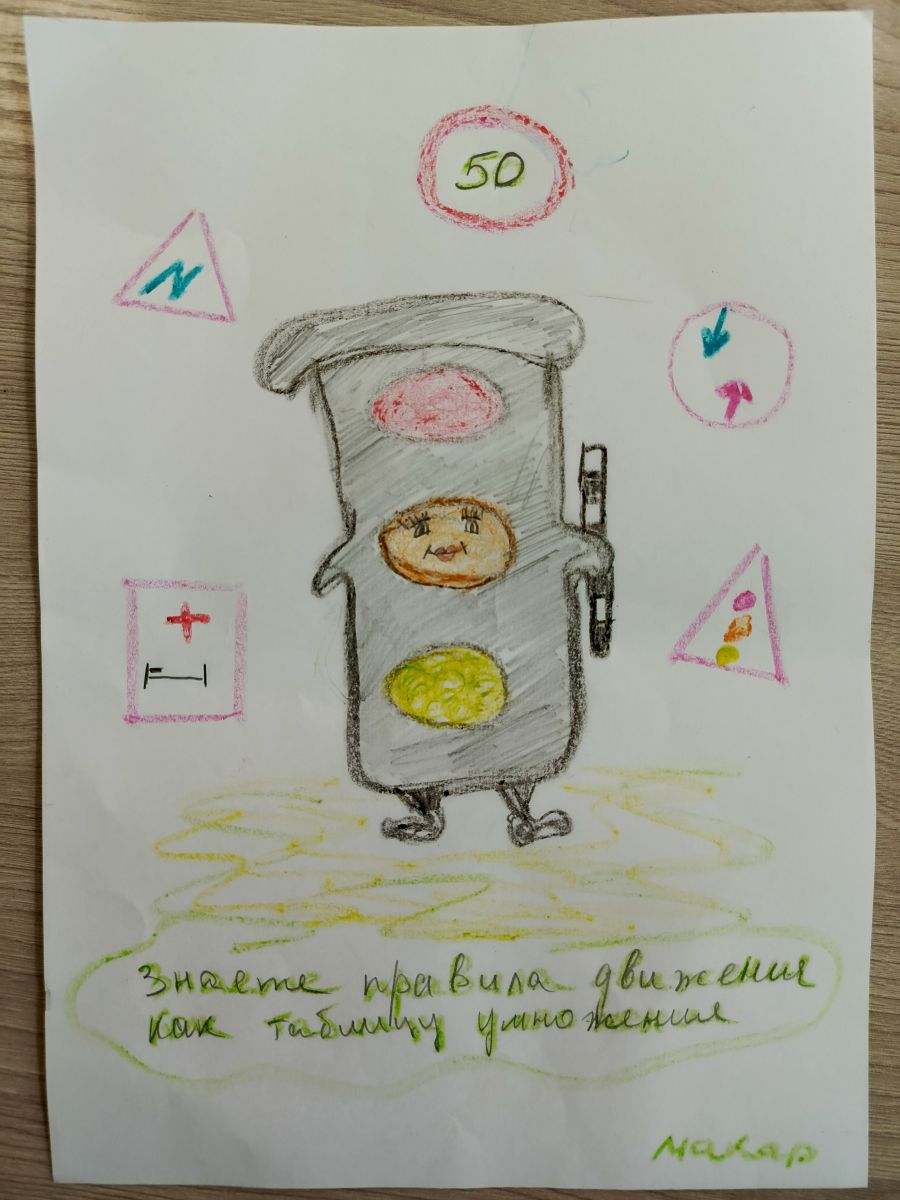 50
Знаете правила движения
как таблицу умножения
Макар